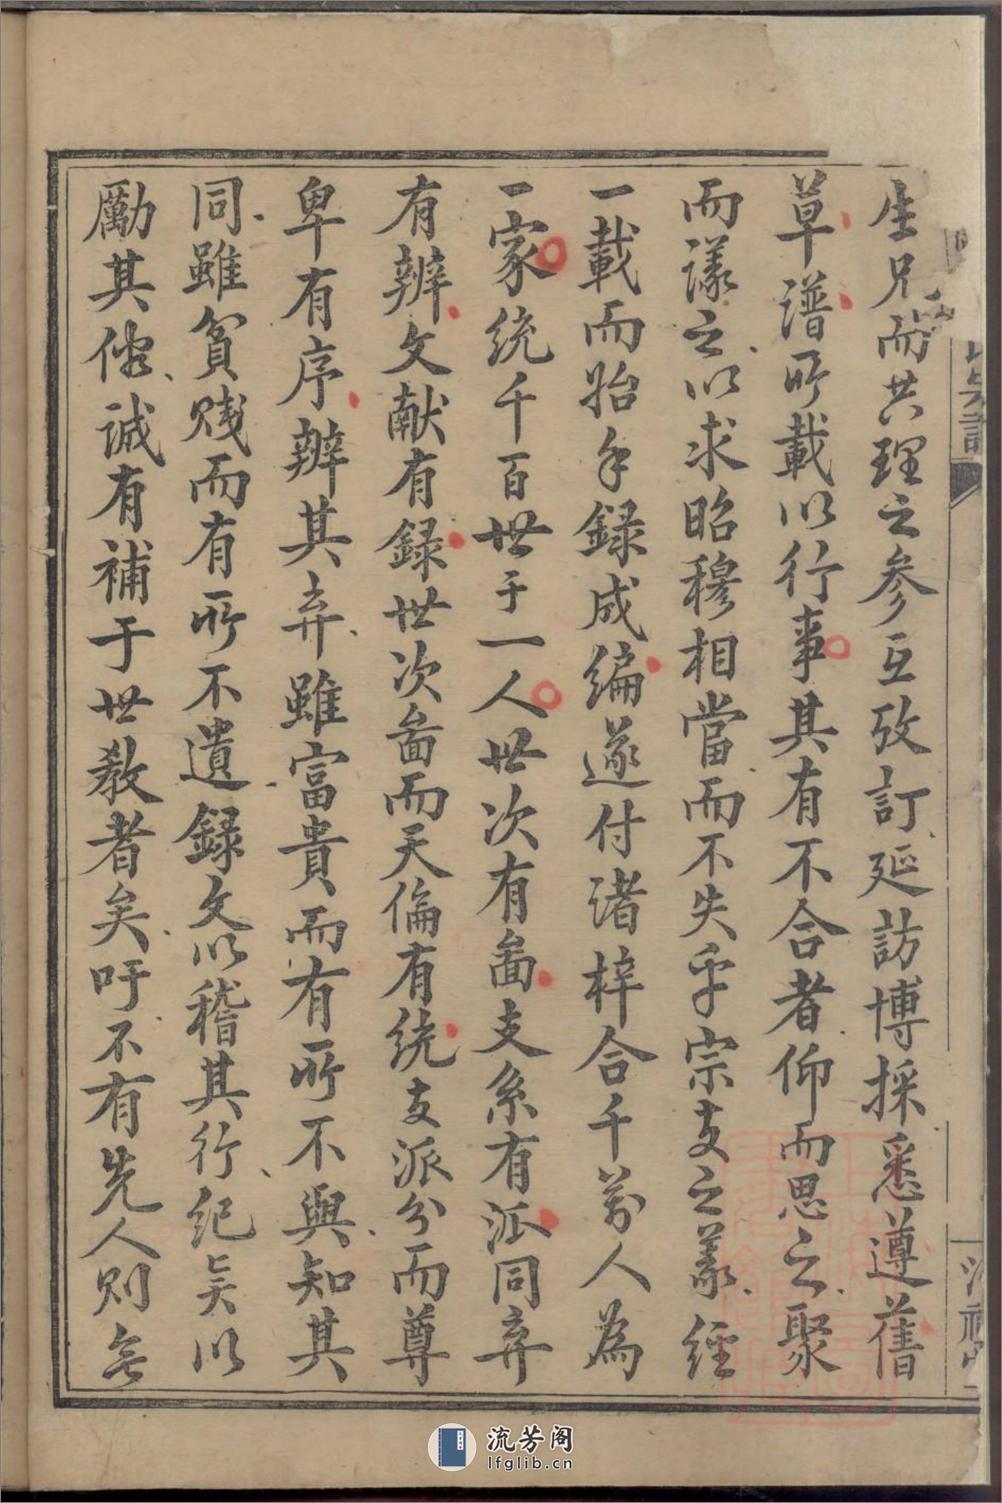 生兄而共理之参互攷訂延訪博採悉遵舊
草譜所載以行事其有不合者仰而思之聚
而議之以求昭穆相當而不失乎宗支之義經
一載而始手録成編遂付諸梓合千萬人為
一家統千百世于一人世次有啚支系有派同弃
有辨文献有録世次啚而天倫有統支派分而尊
卑有序辨其弃雖富貴而有所不與知其
同雖貧賤而有所不遺録文以稽其行紀美以
勵其他誠有補于世教者矣吁不有先人則無
流芳阁
lfglib.cn